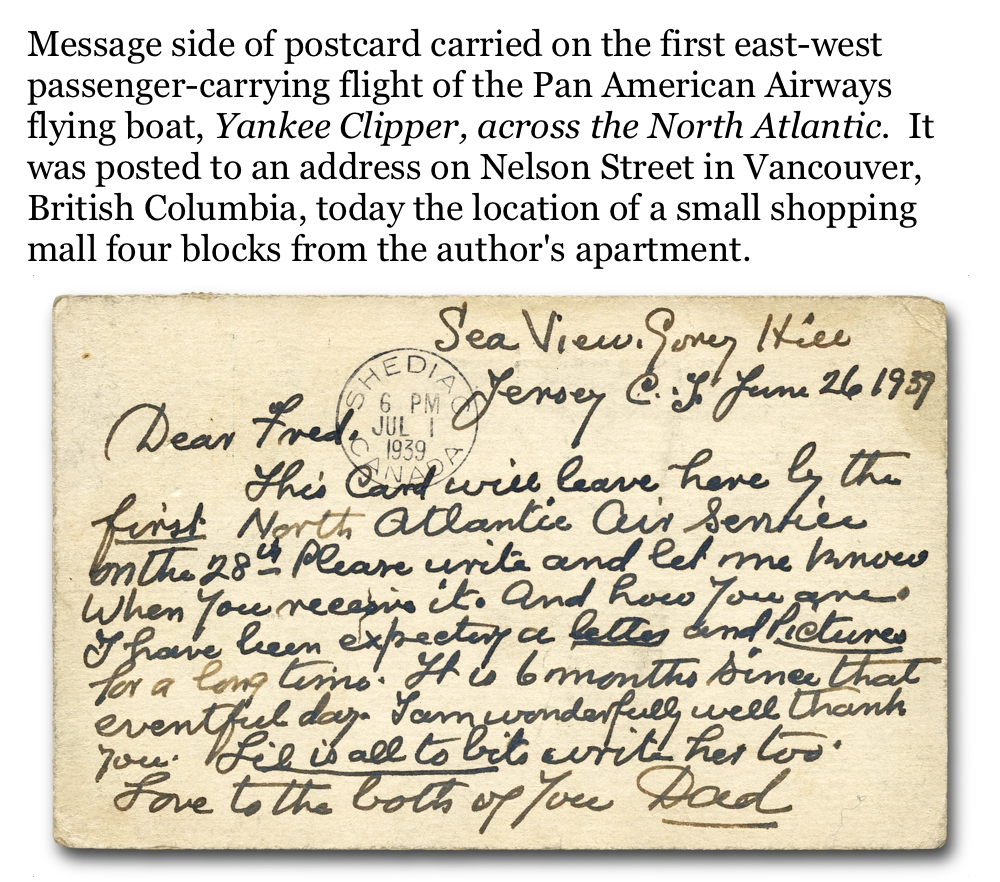 Message side of postcard carried on the first east-west
passenger-carrying flight of the Pan American Airways
flying boat, Yankee Clipper, across the North Atlantic. It
was posted to an address on Nelson Street in Vancouver,
British Columbia, today the location of a small shopping
mall four blocks from the author's apartment.
Sea View. Gorey Hill
Jersey C.I. June 26 1939
SHEDIAC
6 PM
JUL 1
1939
CANADA
Dear Fred.
This Card will leave here by the
first North Atlantic Air Service
on the 28th Please write and let me know
When you receive it. And how you are.
I have been expecting a letter and Pictures
for a long time. It is 6 months since that
eventful day. I am wonderfully well thank
you. Lil is all to bits write her too.
Love to the both of you Dad